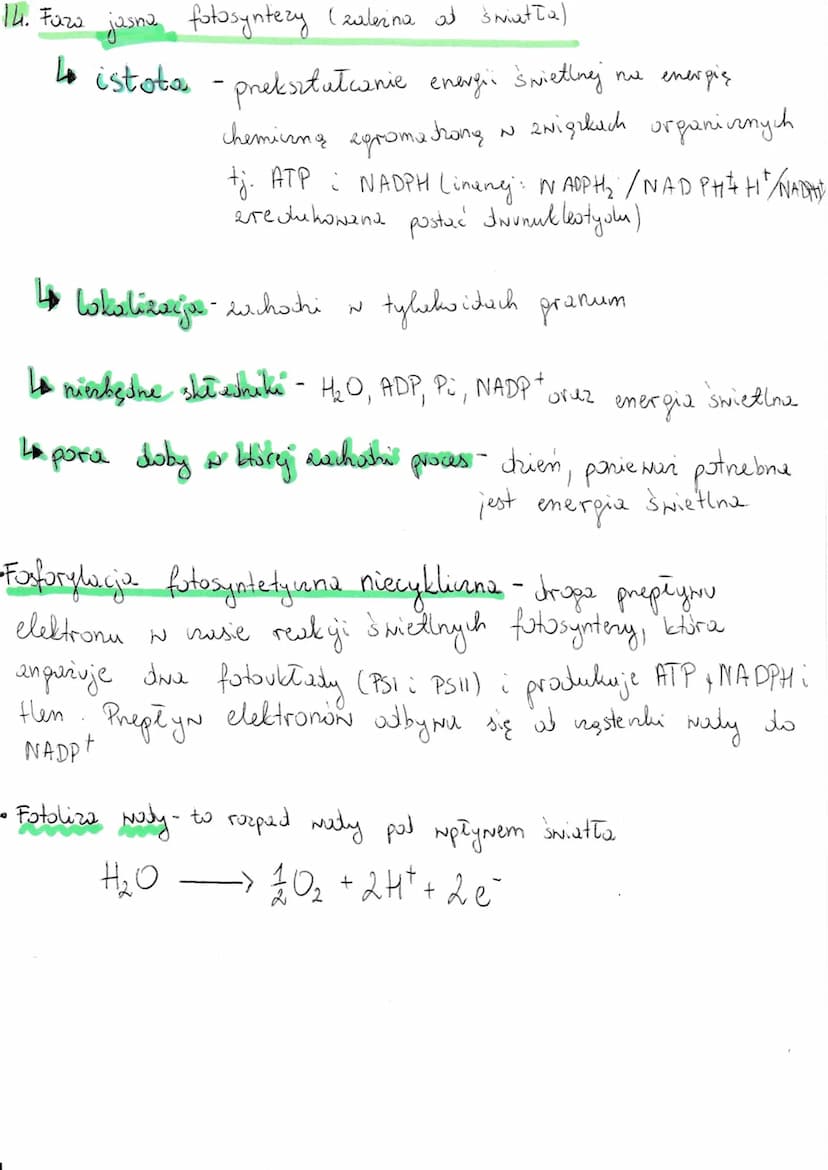 14. Faza jasna fotosyntezy (zależna od światła)
↳ istota - przekształcanie energii świetlnej na energię
chemiczną zgromadzoną w związkach organicznych
tj. ATP i NADPH (inaczej: NADPH₂ /NADPH + H⁺/
zredukowana postać dwunukleotydu)
↳ lokalizacja - zachodzi w tylakoidach granum
↳ niezbędne składniki - H₂O, ADP, Pi, NADP⁺ oraz energia świetlna
↳ pora doby w której zachodzi proces - dzień, ponieważ potrzebna
jest energia świetlna
• Fosforylacja fotosyntetyczna niecykliczna - droga przepływu
elektronu w czasie reakcji świetlnych fotosyntezy, która
angażuje dwa fotoukłady (PSI i PSII) i produkuje ATP, NADPH i
tlen. Przepływ elektronów odbywa się od cząsteczki wody do
NADP⁺
• Fotoliza wody - to rozpad wody pod wpływem światła
H₂O ⟶ ½O₂ + 2H⁺ + 2e⁻